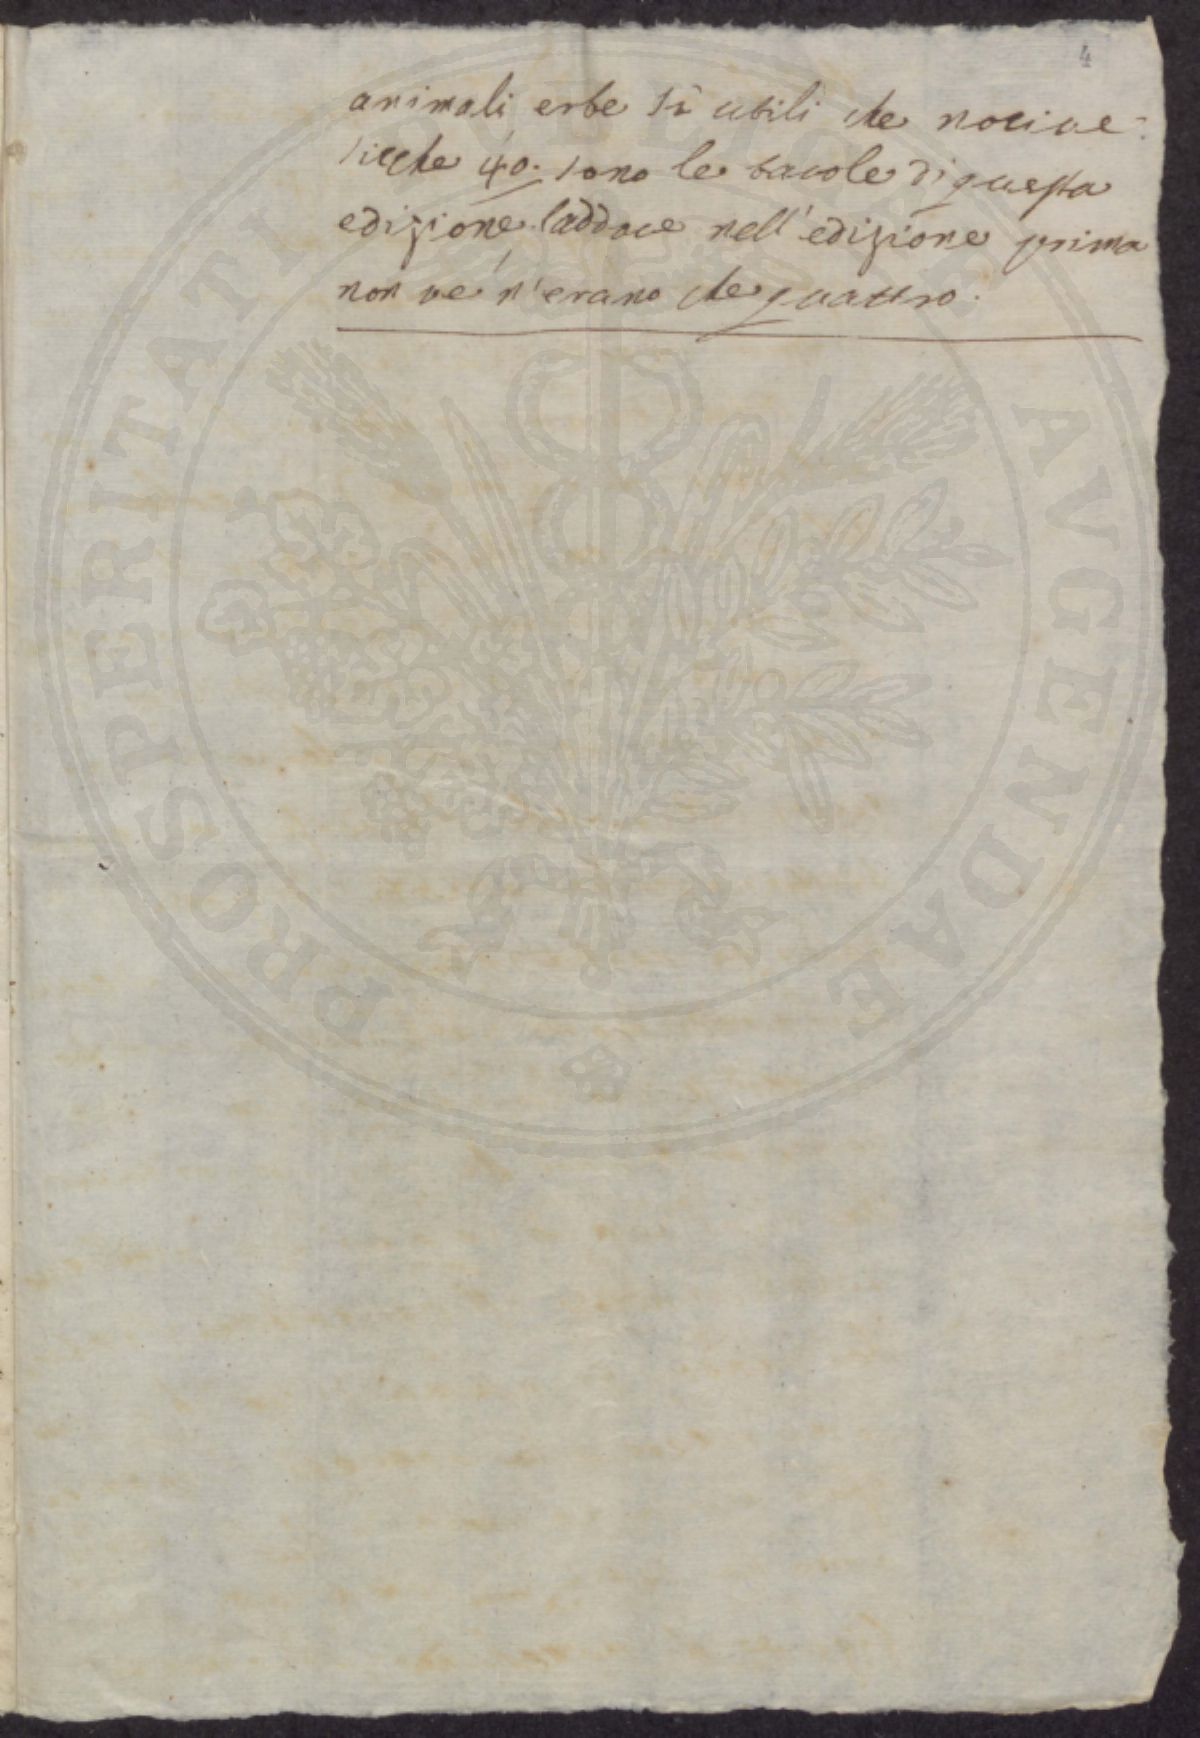 4
animali, erbe sì utili che nocive.
sicche 40. sono le tavole di questa
edizione laddove nell'edizione prima
non ve n'erano che quattro.
PROSPERITATI PUBLICAE AVGENDAE